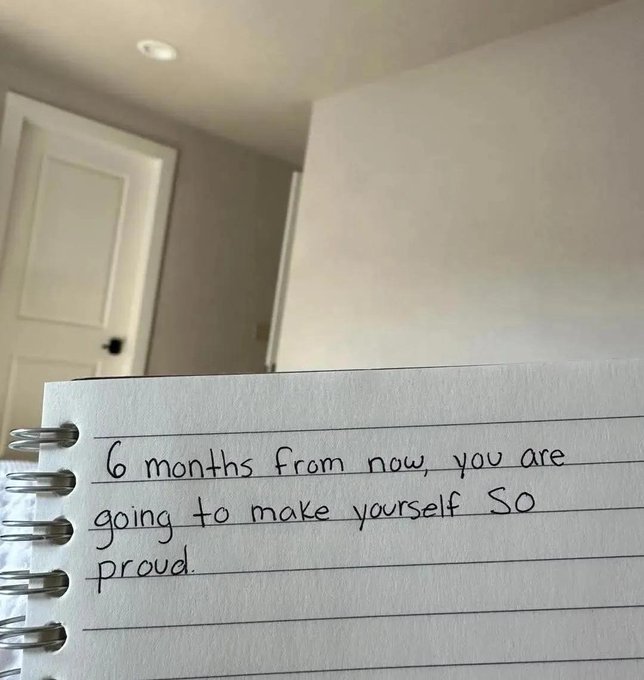 6 months from now, you are
going to make yourself SO
proud.